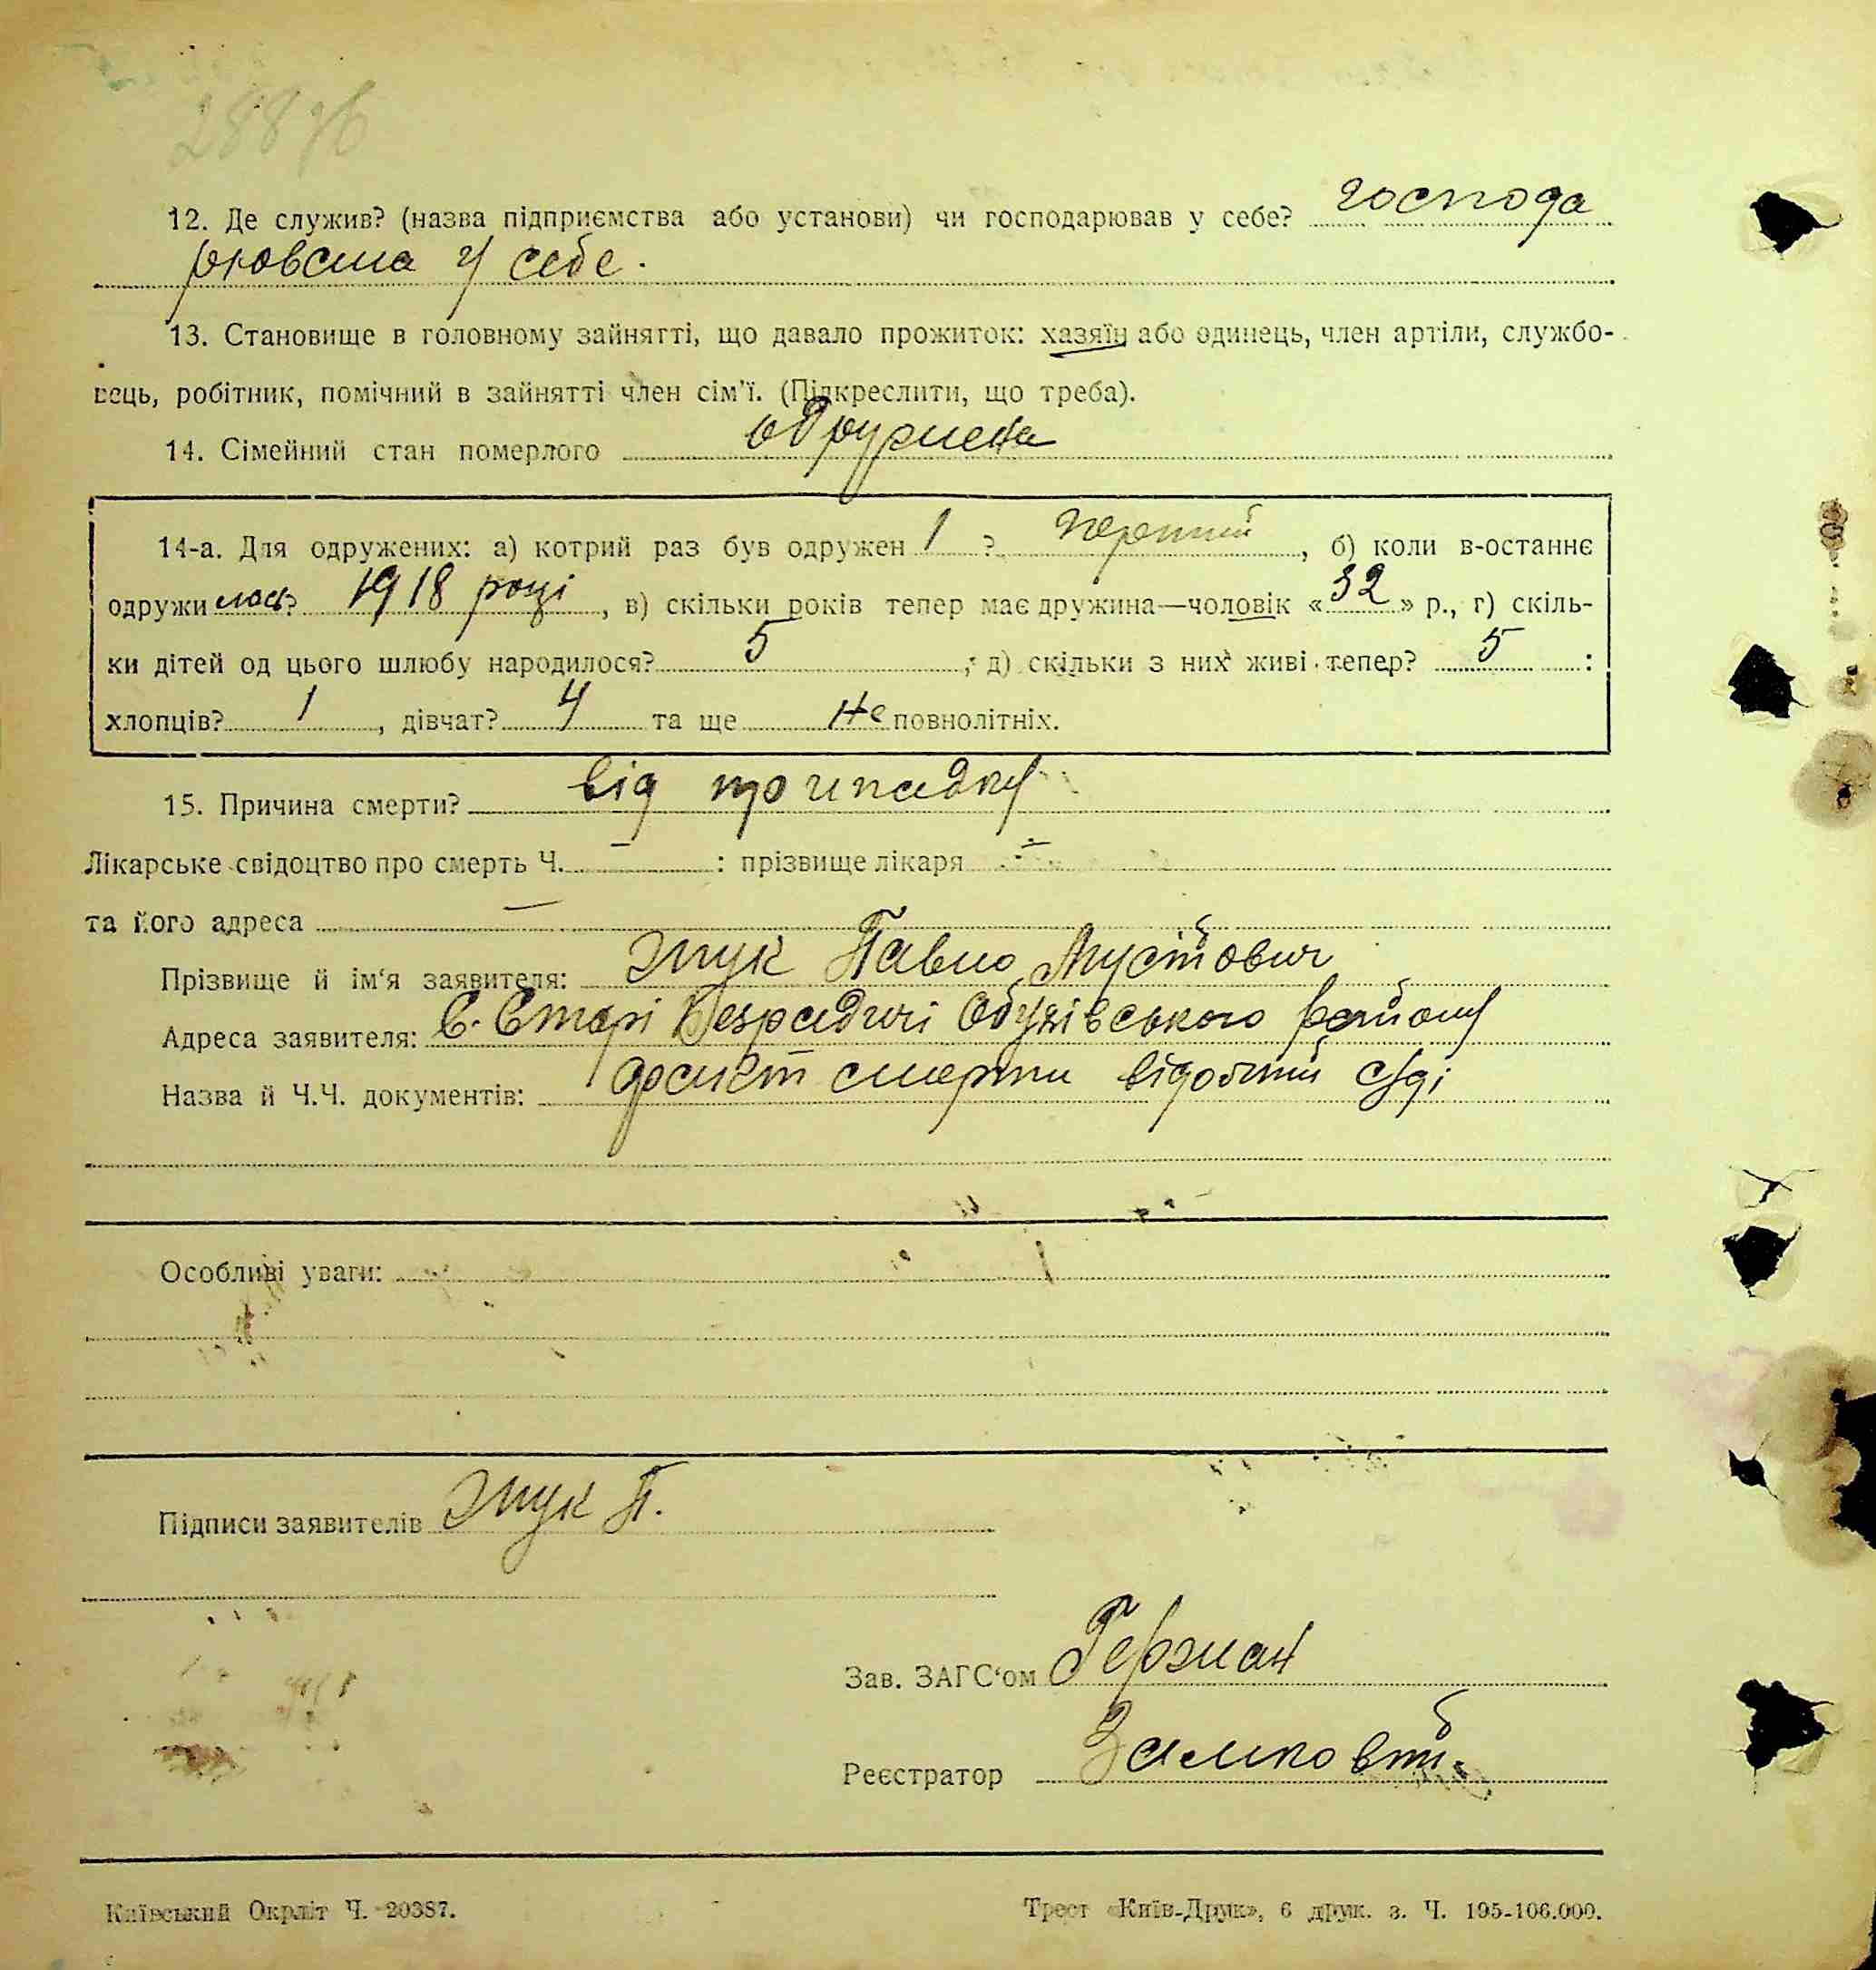 28876
12. Де служив? (назва підприємства або установи) чи господарював у себе? господа
рювала у себе.
13. Становище в головному зайнятті, що давало прожиток: хазяїн або одинець, член артіли, службо-
вець, робітник, помічний в зайнятті член сім'ї. (Підкреслити, що треба).
14. Сімейний стан померлого одружена
14-а. Для одружених: а) котрий раз був одружен 1 ? перший, б) коли в-останнє
одружилась? 1918 році, в) скільки років тепер має дружина—чоловік «32» р., г) скіль-
ки дітей од цього шлюбу народилося? 5, д) скільки з них живі тепер? 5 :
хлопців? 1, дівчат? 4 та ще не повнолітніх.
15. Причина смерти? від припадку
Лікарське свідоцтво про смерть Ч. — : прізвище лікаря —
та його адреса —
Прізвище й ім'я заявителя: Жук Павло Мусійович
Адреса заявителя: С. Старі Безрадичі Обухівського району
Назва й Ч.Ч. документів: смерти суді
Особливі уваги:
Підписи заявителів Жук П.
Зав. ЗАГС'ом Герман
Реєстратор
Київський Окрліт Ч. 20387.
Трест «Київ-Друк», 6 друк. з. Ч. 195-106.000.